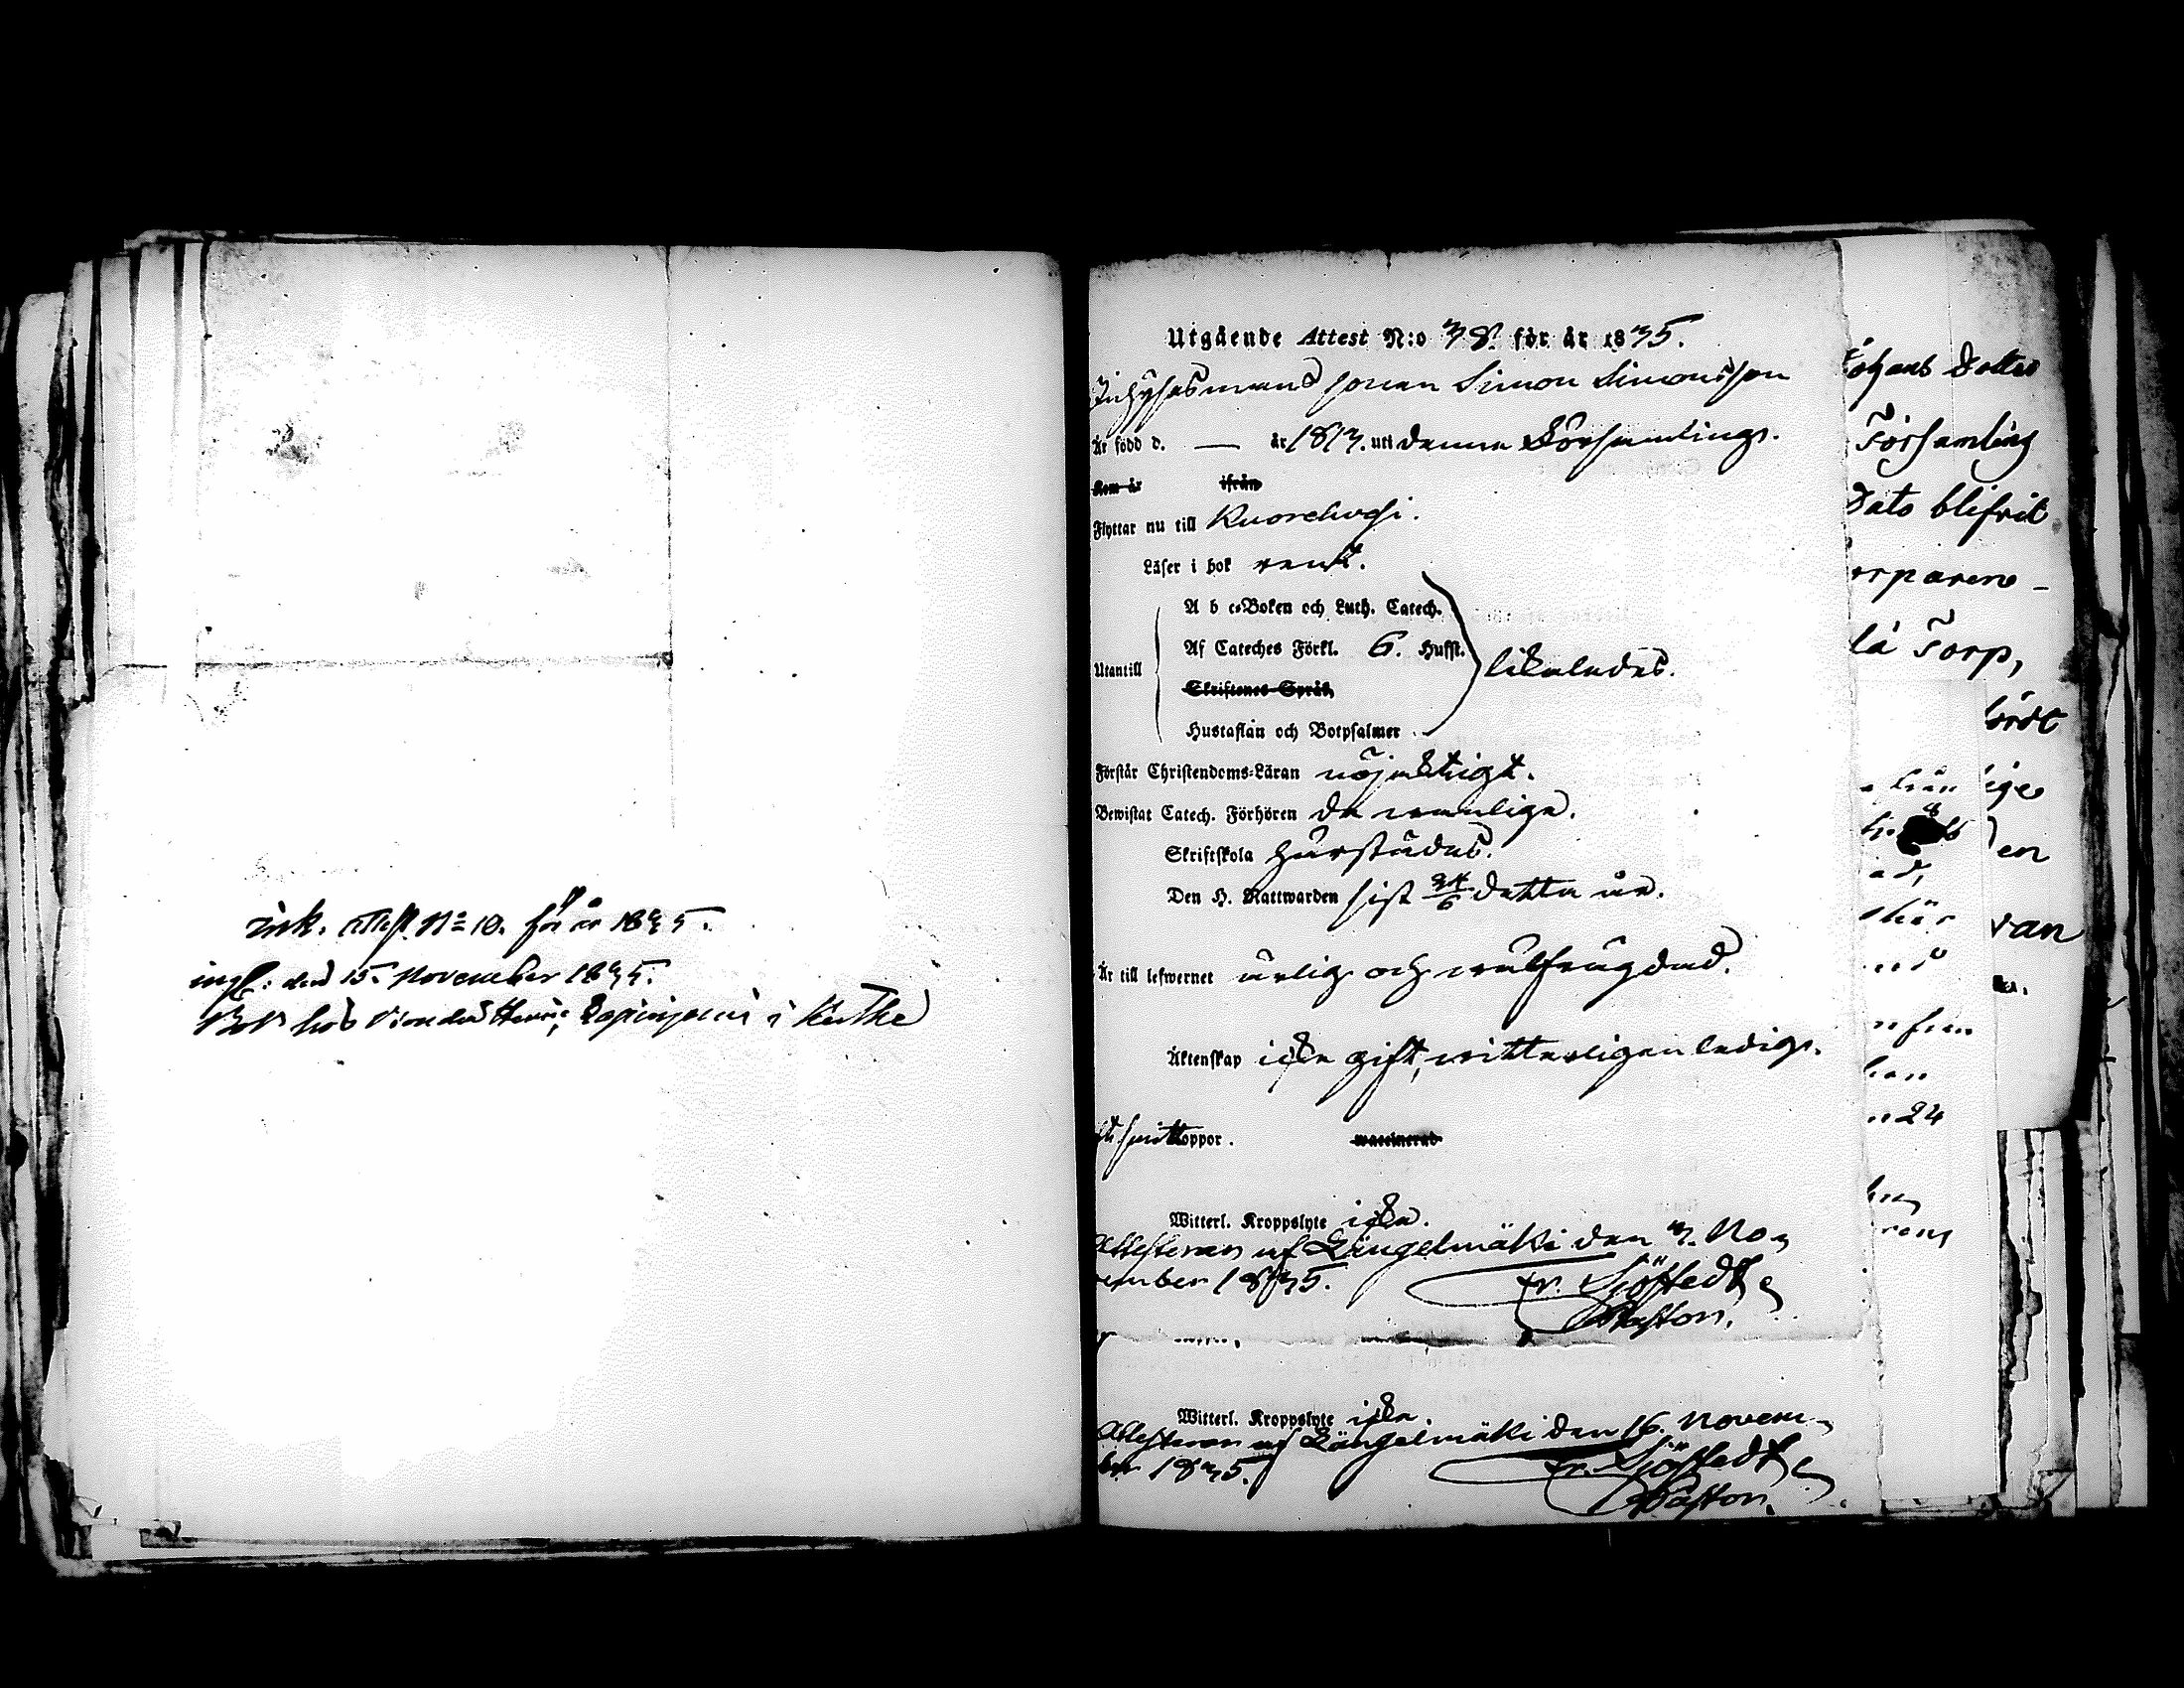 ink. attest N:o 10. för år 1835.
ingl: den 15. November 1835.
Bor hos Bonden i
Utgående Attest N:o 38. för år 1835.
Inhysesmans sonen Simon Simonsson
Är född d. — år 1813. uti denna Församling.
Kom år ifrån
Flyttar nu till Kuorehvesi.
Läser i bok rent.
A b c-Boken och Luth. Catech.
Af Cateches Förkl. 6. Hufst.
Utantill likaledes.
Skriftenes Språk,
Hustaflan och Botpsalmer
Förstår Christendoms-Läran nöjaktigt.
Bewistat Catech. Förhören de wanliga.
Skriftskola härstädes.
Den H. Nattwarden sist 24/6 detta år.
Är till lefwernet ärlig och wälfrägdad.
Äktenskap icke gift, witterligen ledig.
koppor. waccinerad
Witterl. Kroppslyte icke.
Attesteras af Längelmäki den 3. No-
vember 1835. Fr. Sjöstedt
Pastor.
Witterl. Kroppslyte icke.
Attesteras af Längelmäki den 16. Novem-
ber 1835. Fr. Sjöstedt
Pastor.
Johans Dotter
Församling
Dato blifvit
Torp,
24